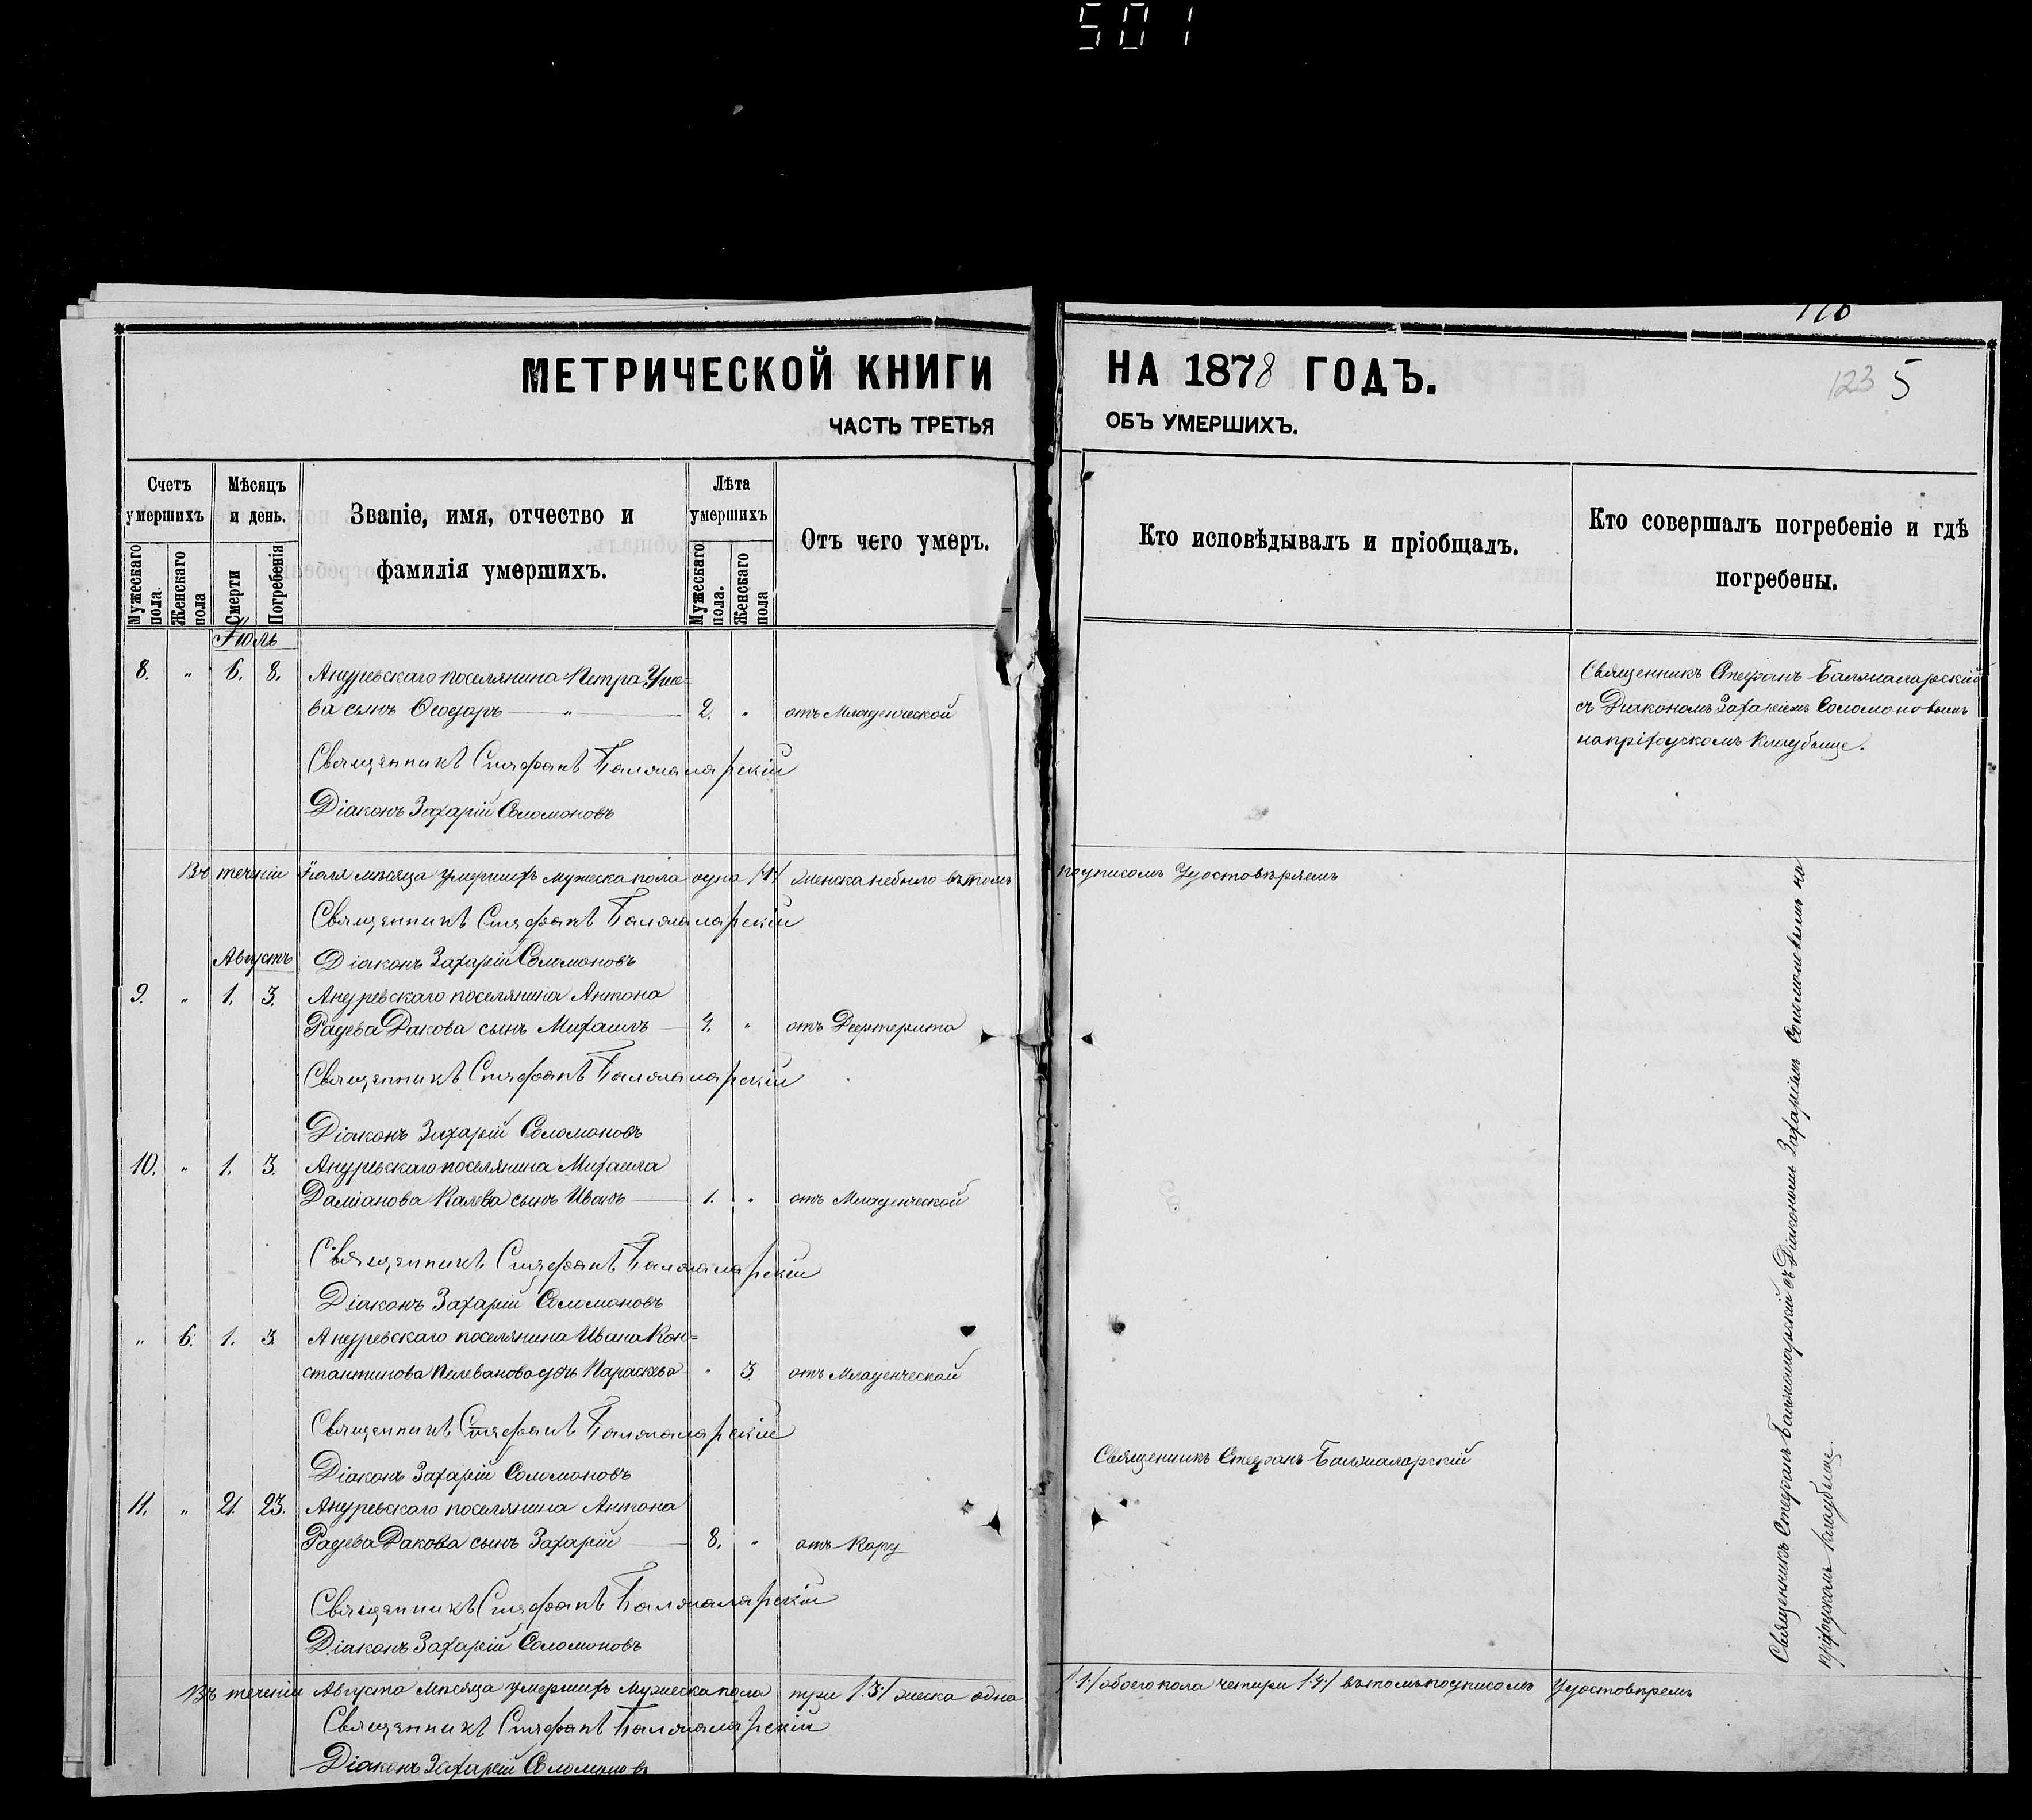 501
176
МЕТРИЧЕСКОЙ КНИГИ НА 1878 ГОДЪ.
123 5
ЧАСТЬ ТРЕТЬЯ ОБЪ УМЕРШИХЪ.
Счетъ умершихъ
Мѣсяцъ и день.
Званіе, имя, отчество и фамилія умершихъ.
Лѣта умершихъ
Отъ чего умеръ.
Кто исповѣдывалъ и пріобщалъ.
Кто совершалъ погребеніе и гдѣ погребены.
Мужескаго пола.
Женскаго пола
Смерти
Погребенія
Мужескаго пола.
Женскаго пола
Іюль
8. " 6. 8. Андревскаго поселянина Петра
ва сынъ Ѳеодоръ — " — 2. " отъ Младенческой
Священникъ Стефанъ Балжаларскій
съ Діакономъ Захаріемъ Соломоновымъ
на приходскомъ кладбище.
Священникъ Стефанъ Балжаларскій
Діаконъ Захарій Соломоновъ
Въ теченіи Іюля мѣсяца умершихъ мужеска пола одна /1/ женска небыло въ томъ подписомъ удостовѣряемъ
Священникъ Стефанъ Балжаларскій
Діаконъ Захарій Соломоновъ
Августъ
9. " 1. 3. Андревскаго поселянина Антона
Радева Дакова сынъ Михаилъ — 4. " отъ Дефтерита
Священникъ Стефанъ Балжаларскій
Діаконъ Захарій Соломоновъ
10. " 1. 3. Андревскаго поселянина Михаила
Даміанова Калева сынъ Иванъ — 1. " отъ Младенческой
Священникъ Стефанъ Балжаларскій
Діаконъ Захарій Соломоновъ
" 6. 1. 3. Андревскаго поселянина Ивана Кон=
стантинова Пелеванова дочь Параскева " 3. отъ Младенческой
Священникъ Стефанъ Балжаларскій
Діаконъ Захарій Соломоновъ
11. " 21. 23. Андревскаго поселянина Антона
Радева Дакова сынъ Захарій — 8. " отъ Кору
Священникъ Стефанъ Балжаларскій
Священникъ Стефанъ Балжаларскій
Діаконъ Захарій Соломоновъ
Священникъ Стефанъ Балжаларскій съ Діакономъ Захаріемъ Соломоновымъ на
приходскомъ кладбище.
Въ теченіи Августа мѣсяца умершихъ мужеска пола три /3/ жеска одна /1/ обоего пола четыри /4/ въ томъ подписомъ удостовѣремъ
Священникъ Стефанъ Балжаларскій
Діаконъ Захарій Соломоновъ